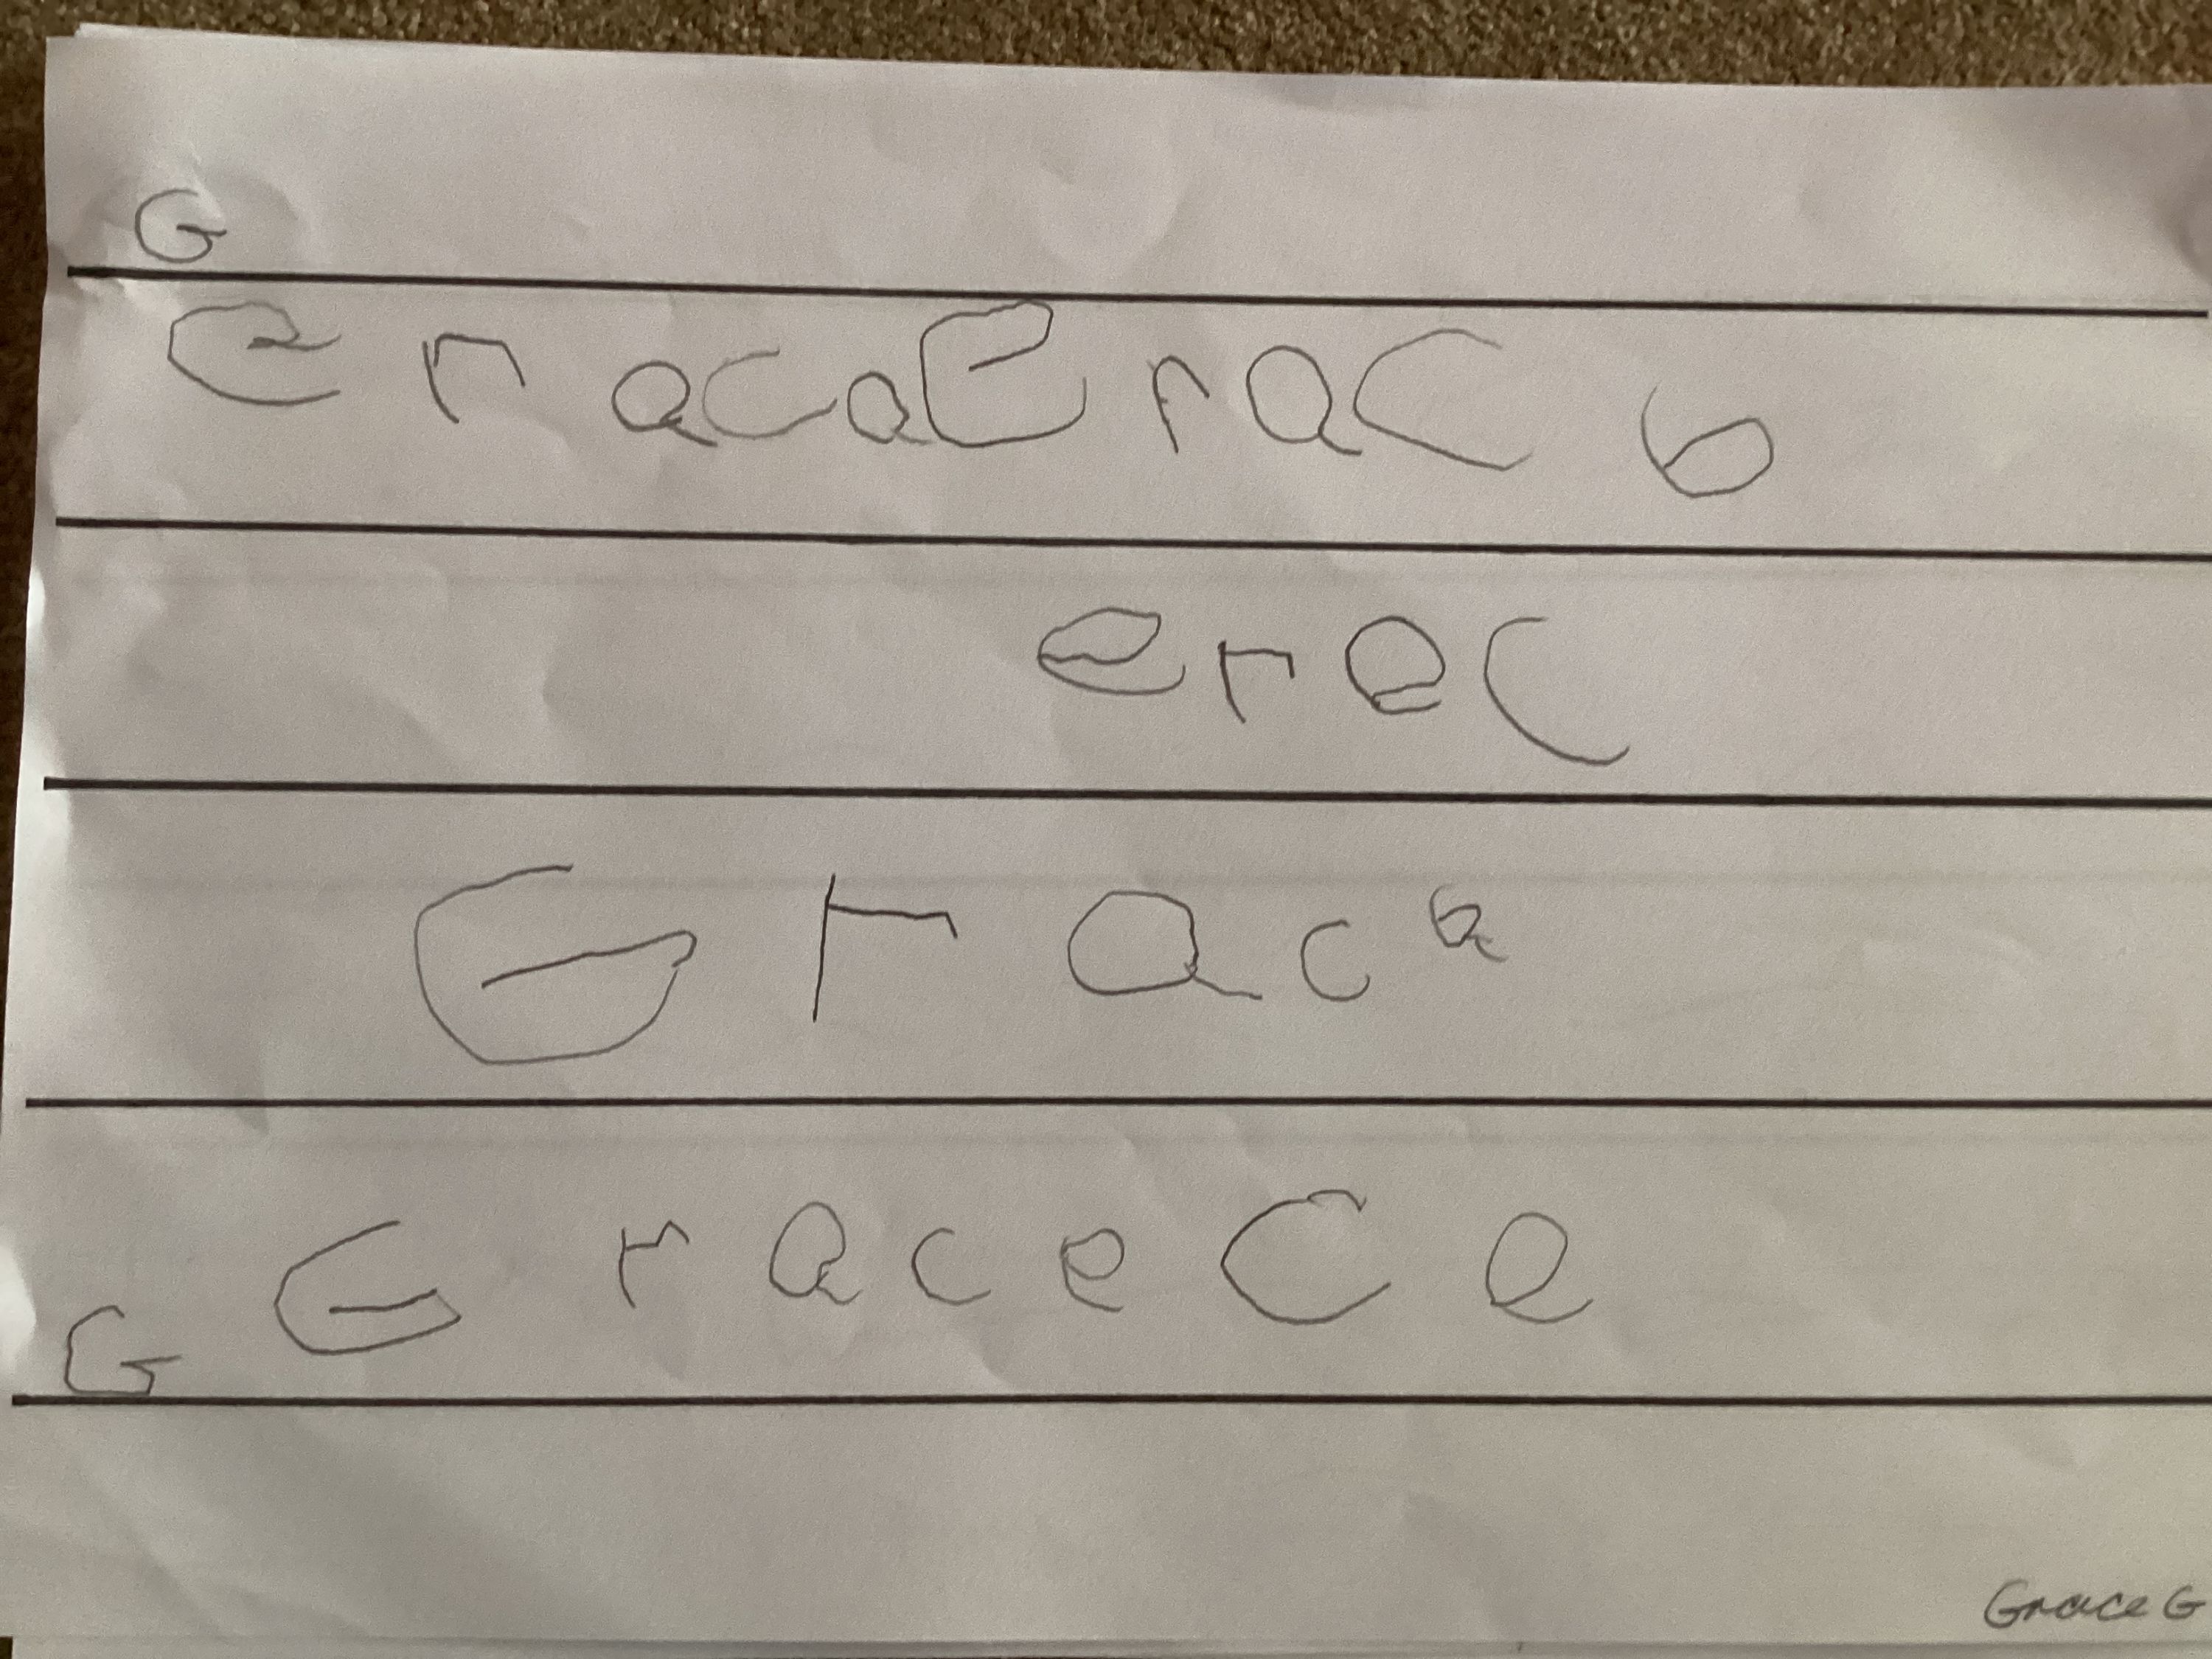 G
e r a c a e r a c 6
e r e c
G r a c a
G G r a c e c e
Grace G